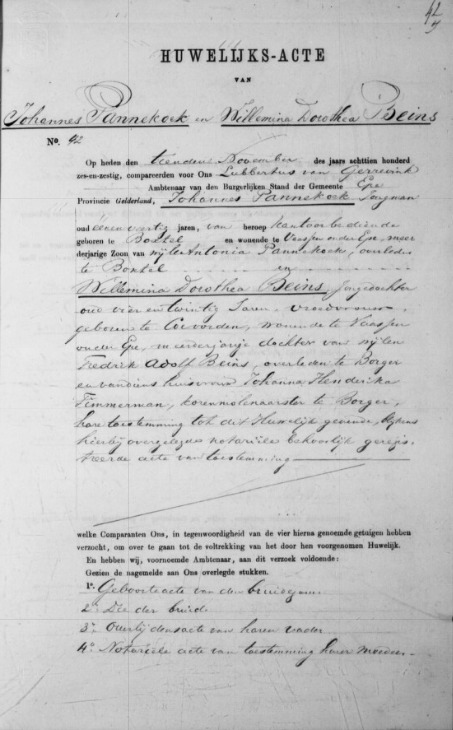 42
HUWELIJKS-ACTE
VAN
Johannes Pannekoek en Willemina Dorothea Beins
No. 42
Op heden den tienden November des jaars achttien honderd
zes-en-zestig, compareerden voor Ons Lubbertus van
Ambtenaar van den Burgerlijken Stand der Gemeente Epe
Provincie Gelderland, Johannes Pannekoek Jongman
oud eenenveertig jaren, van beroep kantoorbediende
geboren te Boxtel en wonende te Vaassen onder Epe, meer
derjarige Zoon van wijlen Antonia Pannekoek, overleden
te Boxtel en
Willemina Dorothea Beins, Jongedochter
oud vier en twintig Jaren,
geboren te Coevorden, wonende te Vaassen
onder Epe, meerderjarige dochter van wijlen
Fredrik Adolf Beins, overleden te Borger
en van diens huisvrouw Johanna Hendrika
Timmerman, korenmolenaarster te Borger,
hare toestemming tot dit Huwelijk gevende, blijkens
hierbij overgelegde notariële behoorlijk geregis
treerde acte van toestemming
welke Comparanten Ons, in tegenwoordigheid van de vier hierna genoemde getuigen hebben
verzocht, om over te gaan tot de voltrekking van het door hen voorgenomen Huwelijk.
En hebben wij, voornoemde Ambtenaar, aan dit verzoek voldoende:
Gezien de nagemelde aan Ons overlegde stukken.
1o. Geboorteacte van den bruidegom
2o. Die der bruid
3o. Overlijdensacte van haren vader
4o. Notariële acte van toestemming harer moeder